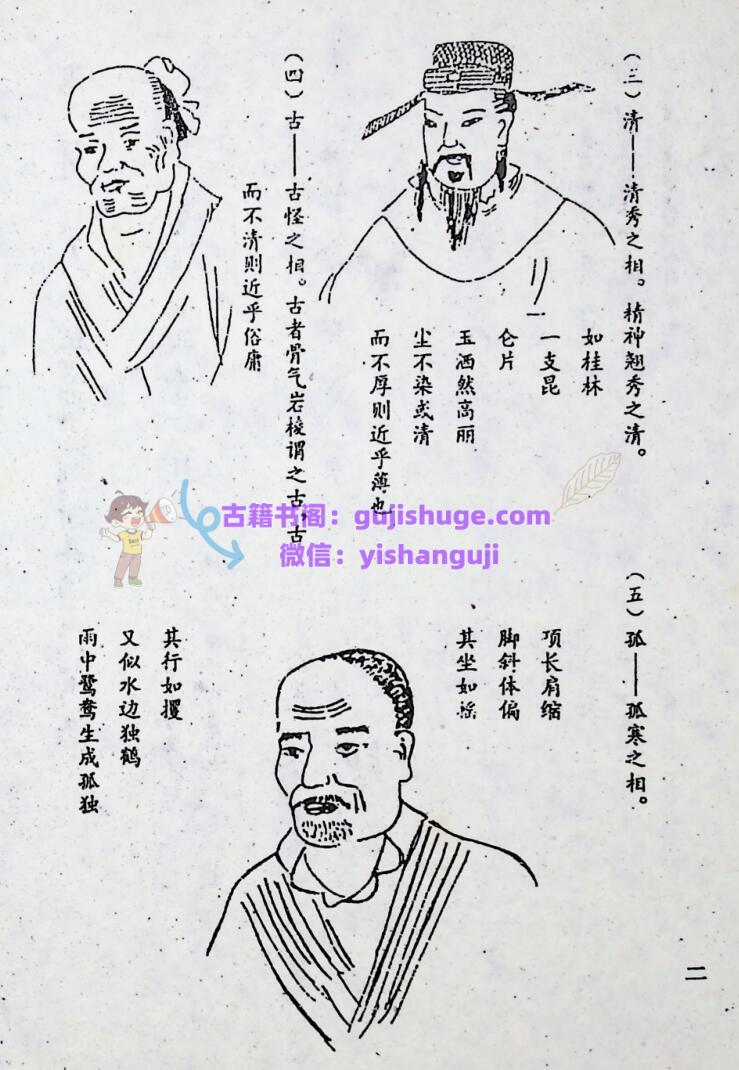 (三)清——清秀之相。精神翘秀之清。
如桂林
一支昆
仑片
玉洒然高丽
尘不染或清
而不厚则近乎薄也
(四)古——古怪之相。古者骨气岩棱谓之古,古
而不清则近乎俗庸
(五)孤——孤寒之相。
项长肩缩
脚斜体偏
其坐如摇
其行如攫
又似水边独鹤
雨中鹭鸶生成孤独
二
古籍书阁:gujishuge.com
微信:yishanguji